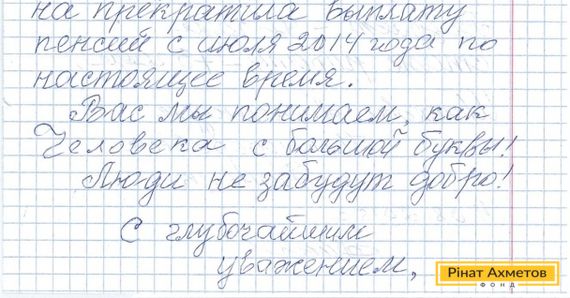 на прекратила выплату
пенсий с июля 2014 года по
настоящее время.
Вас мы понимаем, как
Человека с большой буквы!
Люди не забудут добро!
С глубочайшим
уважением,
Рінат Ахметов
ФОНД